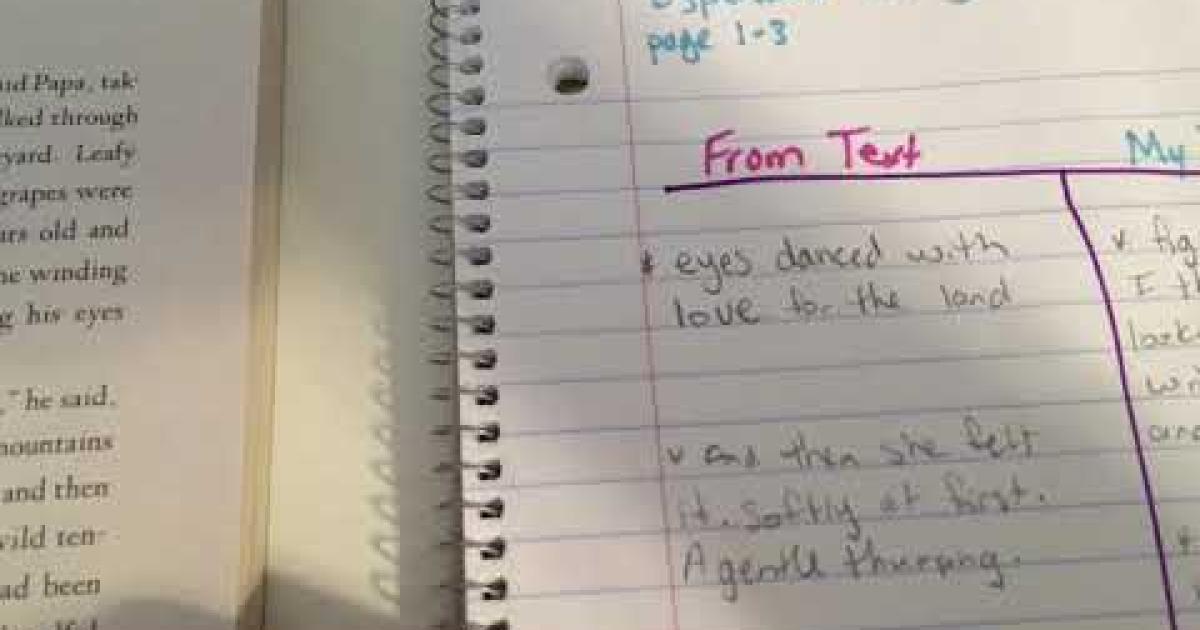 nd Papa, tak
lked through
yard. Leafy
grapes were
ars old and
he winding
g his eyes
," he said.
mountains
and then
wild ten-
ad been
page 1-3
From Text
My
* eyes danced with
love for the land
v and then she felt
it. Softly at first.
A gentle thumping.
v fig
I th
look
wi
and